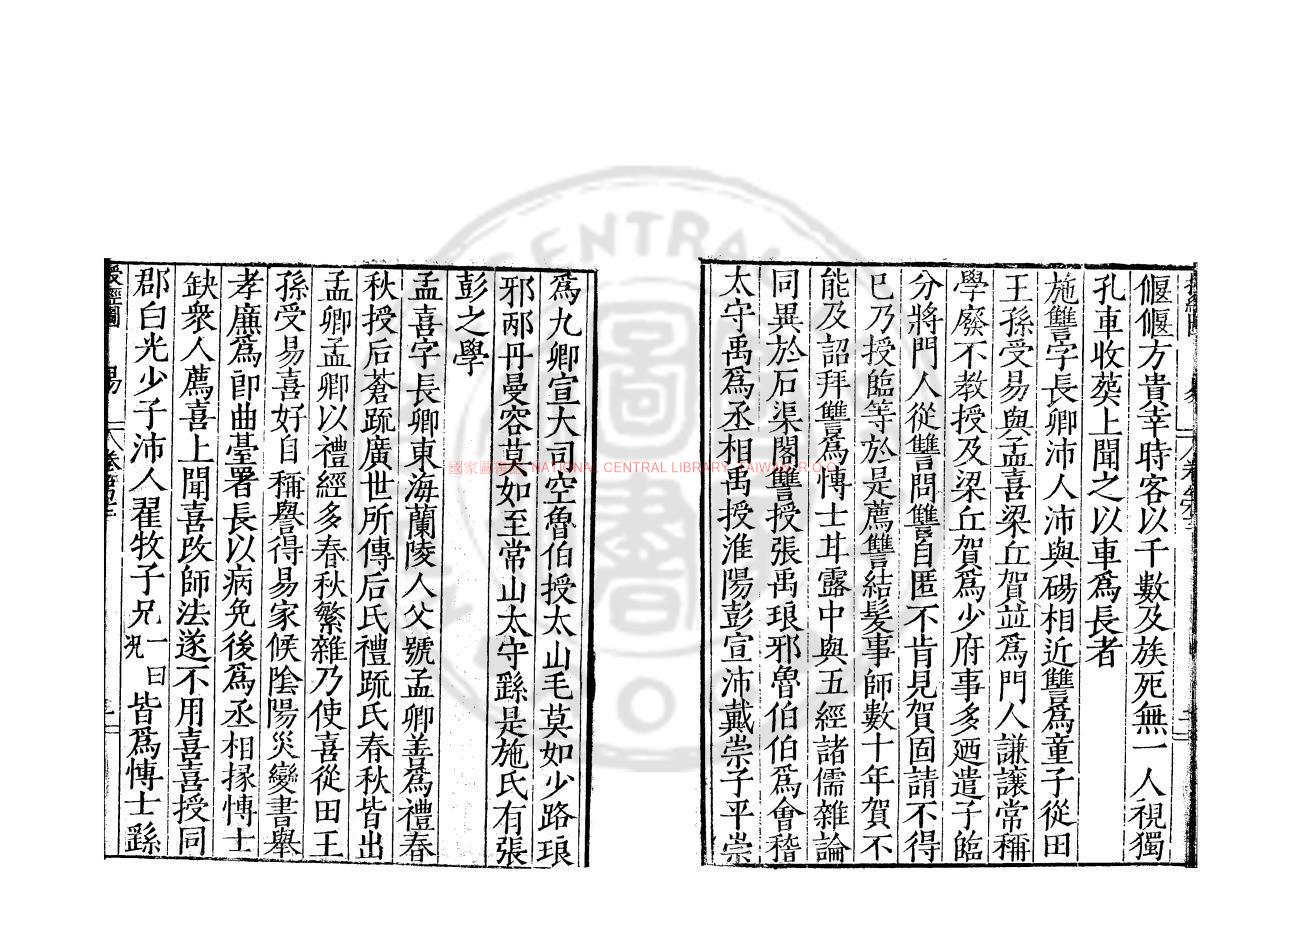 偃偃方貴幸時客以千數及族死無一人視獨
孔車收葬上聞之以車爲長者
施讐字長卿沛人沛與碭相近讐爲童子從田
王孫受易與孟喜梁丘賀並爲門人謙讓常稱
學廢不教授及梁丘賀爲少府事多廼遣子臨
分將門人從讐問讐自匿不肯見賀固請不得
已乃授臨等於是薦讐結髮事師數十年賀不
能及詔拜讐爲愽士甘露中與五經諸儒雜論
同異於石渠閣讐授張禹琅邪魯伯伯爲會稽
太守禹爲丞相禹授淮陽彭宣沛戴崇子平崇
爲九卿宣大司空魯伯授太山毛莫如少路琅
邪邴丹曼容莫如至常山太守繇是施氏有張
彭之學
孟喜字長卿東海蘭陵人父號孟卿善爲禮春
秋授后蒼疏廣世所傳后氏禮疏氏春秋皆出
孟卿孟卿以禮經多春秋繁雜乃使喜從田王
孫受易喜好自稱譽得易家候陰陽災變書舉
孝廉爲郎曲臺署長以病免後爲丞相掾愽士
缺衆人薦喜上聞喜改師法遂不用喜喜授同
郡白光少子沛人翟牧子兄一曰況皆爲愽士繇
授經圖 易 卷第三
國家圖書館 NATIONAL CENTRAL LIBRARY, TAIWAN, R.O.C